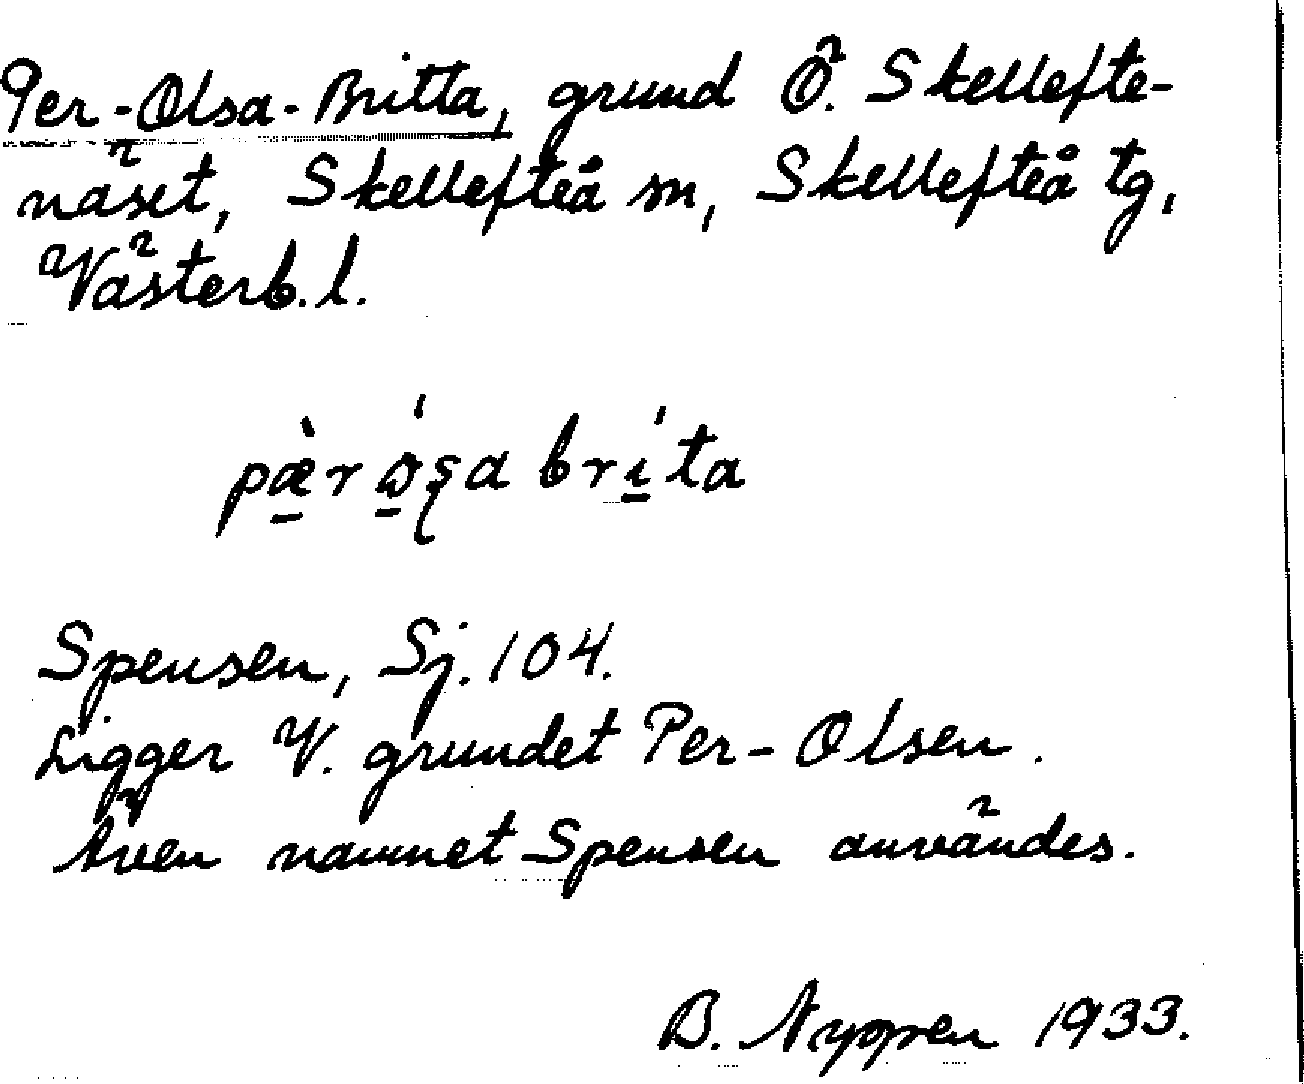 Per-Olsa-Britta, grund Ö. Skellefte-
näset, Skellefteå sn, Skellefteå tg,
Västerb. l.
pæ̀r ǫ́ʂa bríta
Spensen, Sj. 104.
Ligger V. grundet Per-Olsen.
Även namnet Spensen användes.
B. Nyppen 1933.